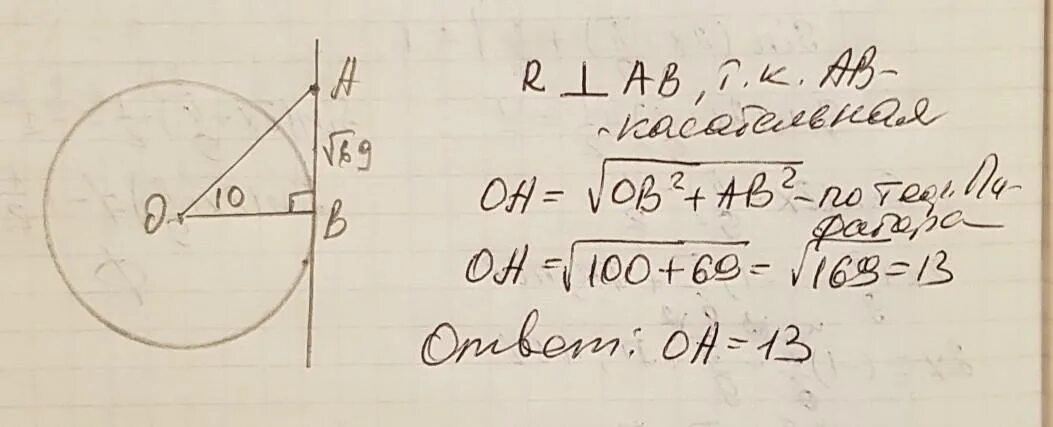 A
√69
10
O
B
R ⊥ AB, т.к. AB-
-касательная
OA = √OB² + AB² - по теор. Пи-
фагора
OA = √100 + 69 = √169 = 13
Ответ: OA = 13